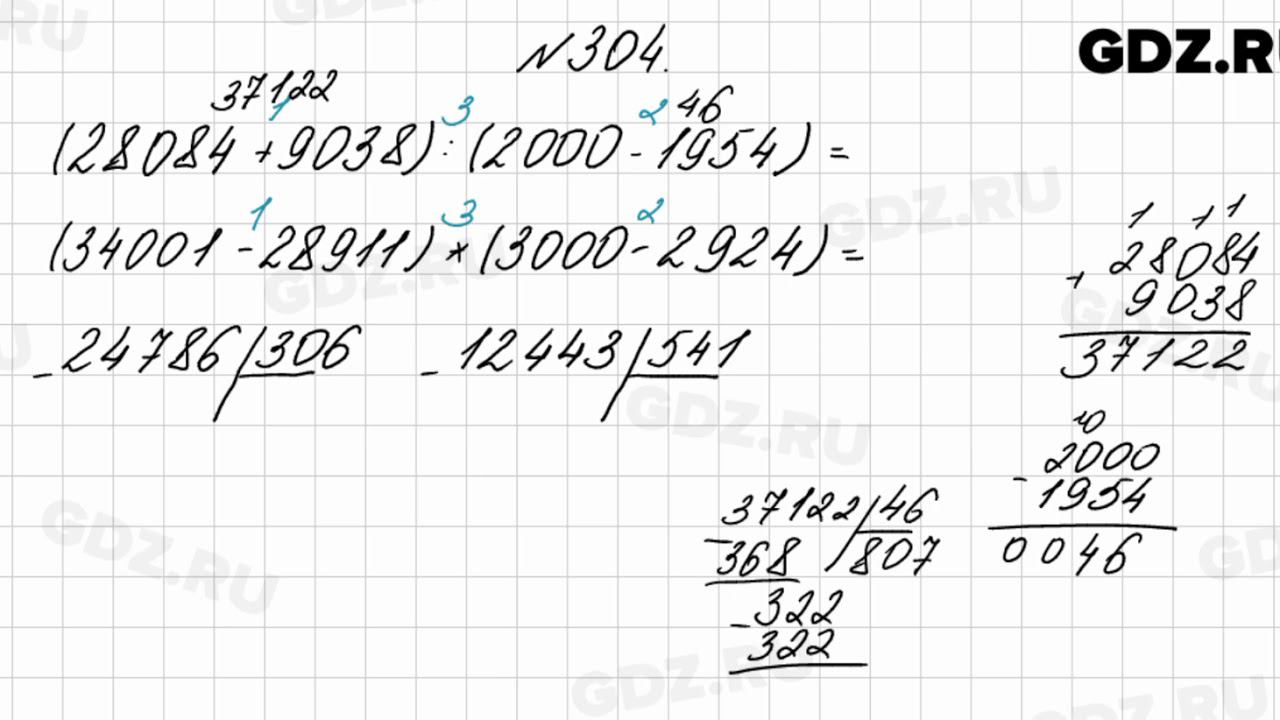 GDZ.RU
№304.
37122 46
1 3 2
(28084 + 9038) : (2000 - 1954) =
1 3 2
(34001 - 28911) * (3000 - 2924) =
- 24786 306
- 12443 541
1 1 1
28084
+ 9038
37122
10
2000
- 1954
0046
37122 46
- 368 807
- 322
322